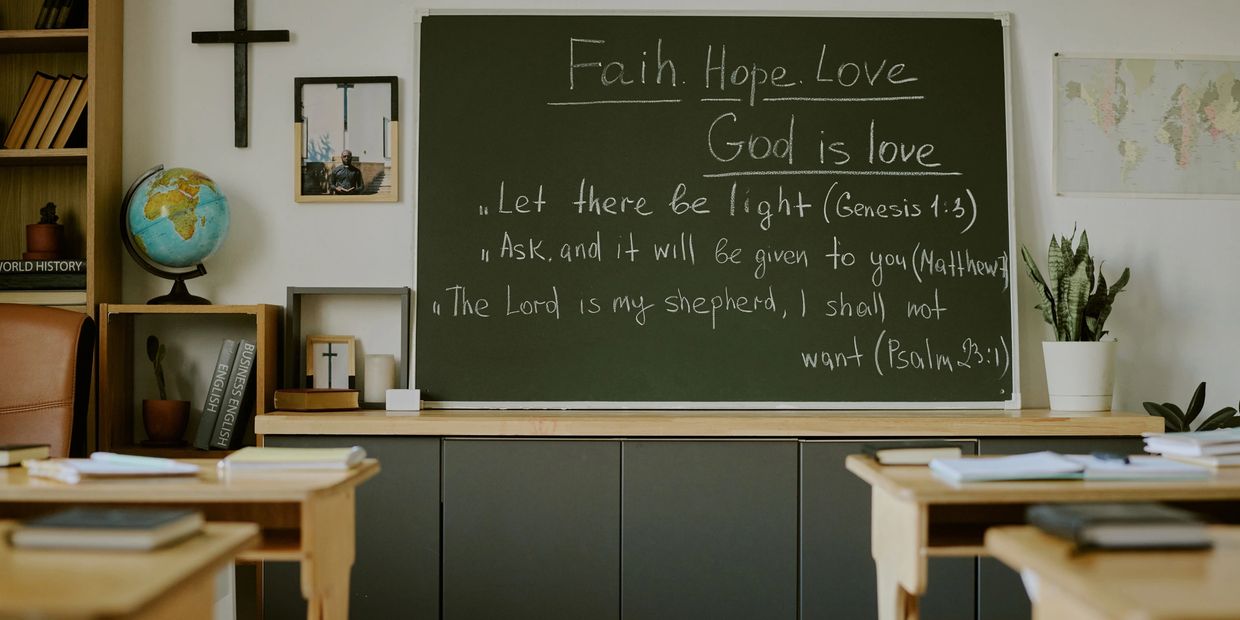 Faih. Hope. Love
God is love
„Let there be light (Genesis 1:3)
„Ask, and it will be given to you (Matthew 7
„The Lord is my shepherd, I shall not
want (Psalm 23:1)
WORLD HISTORY
ENGLISH
BUSINESS ENGLISH